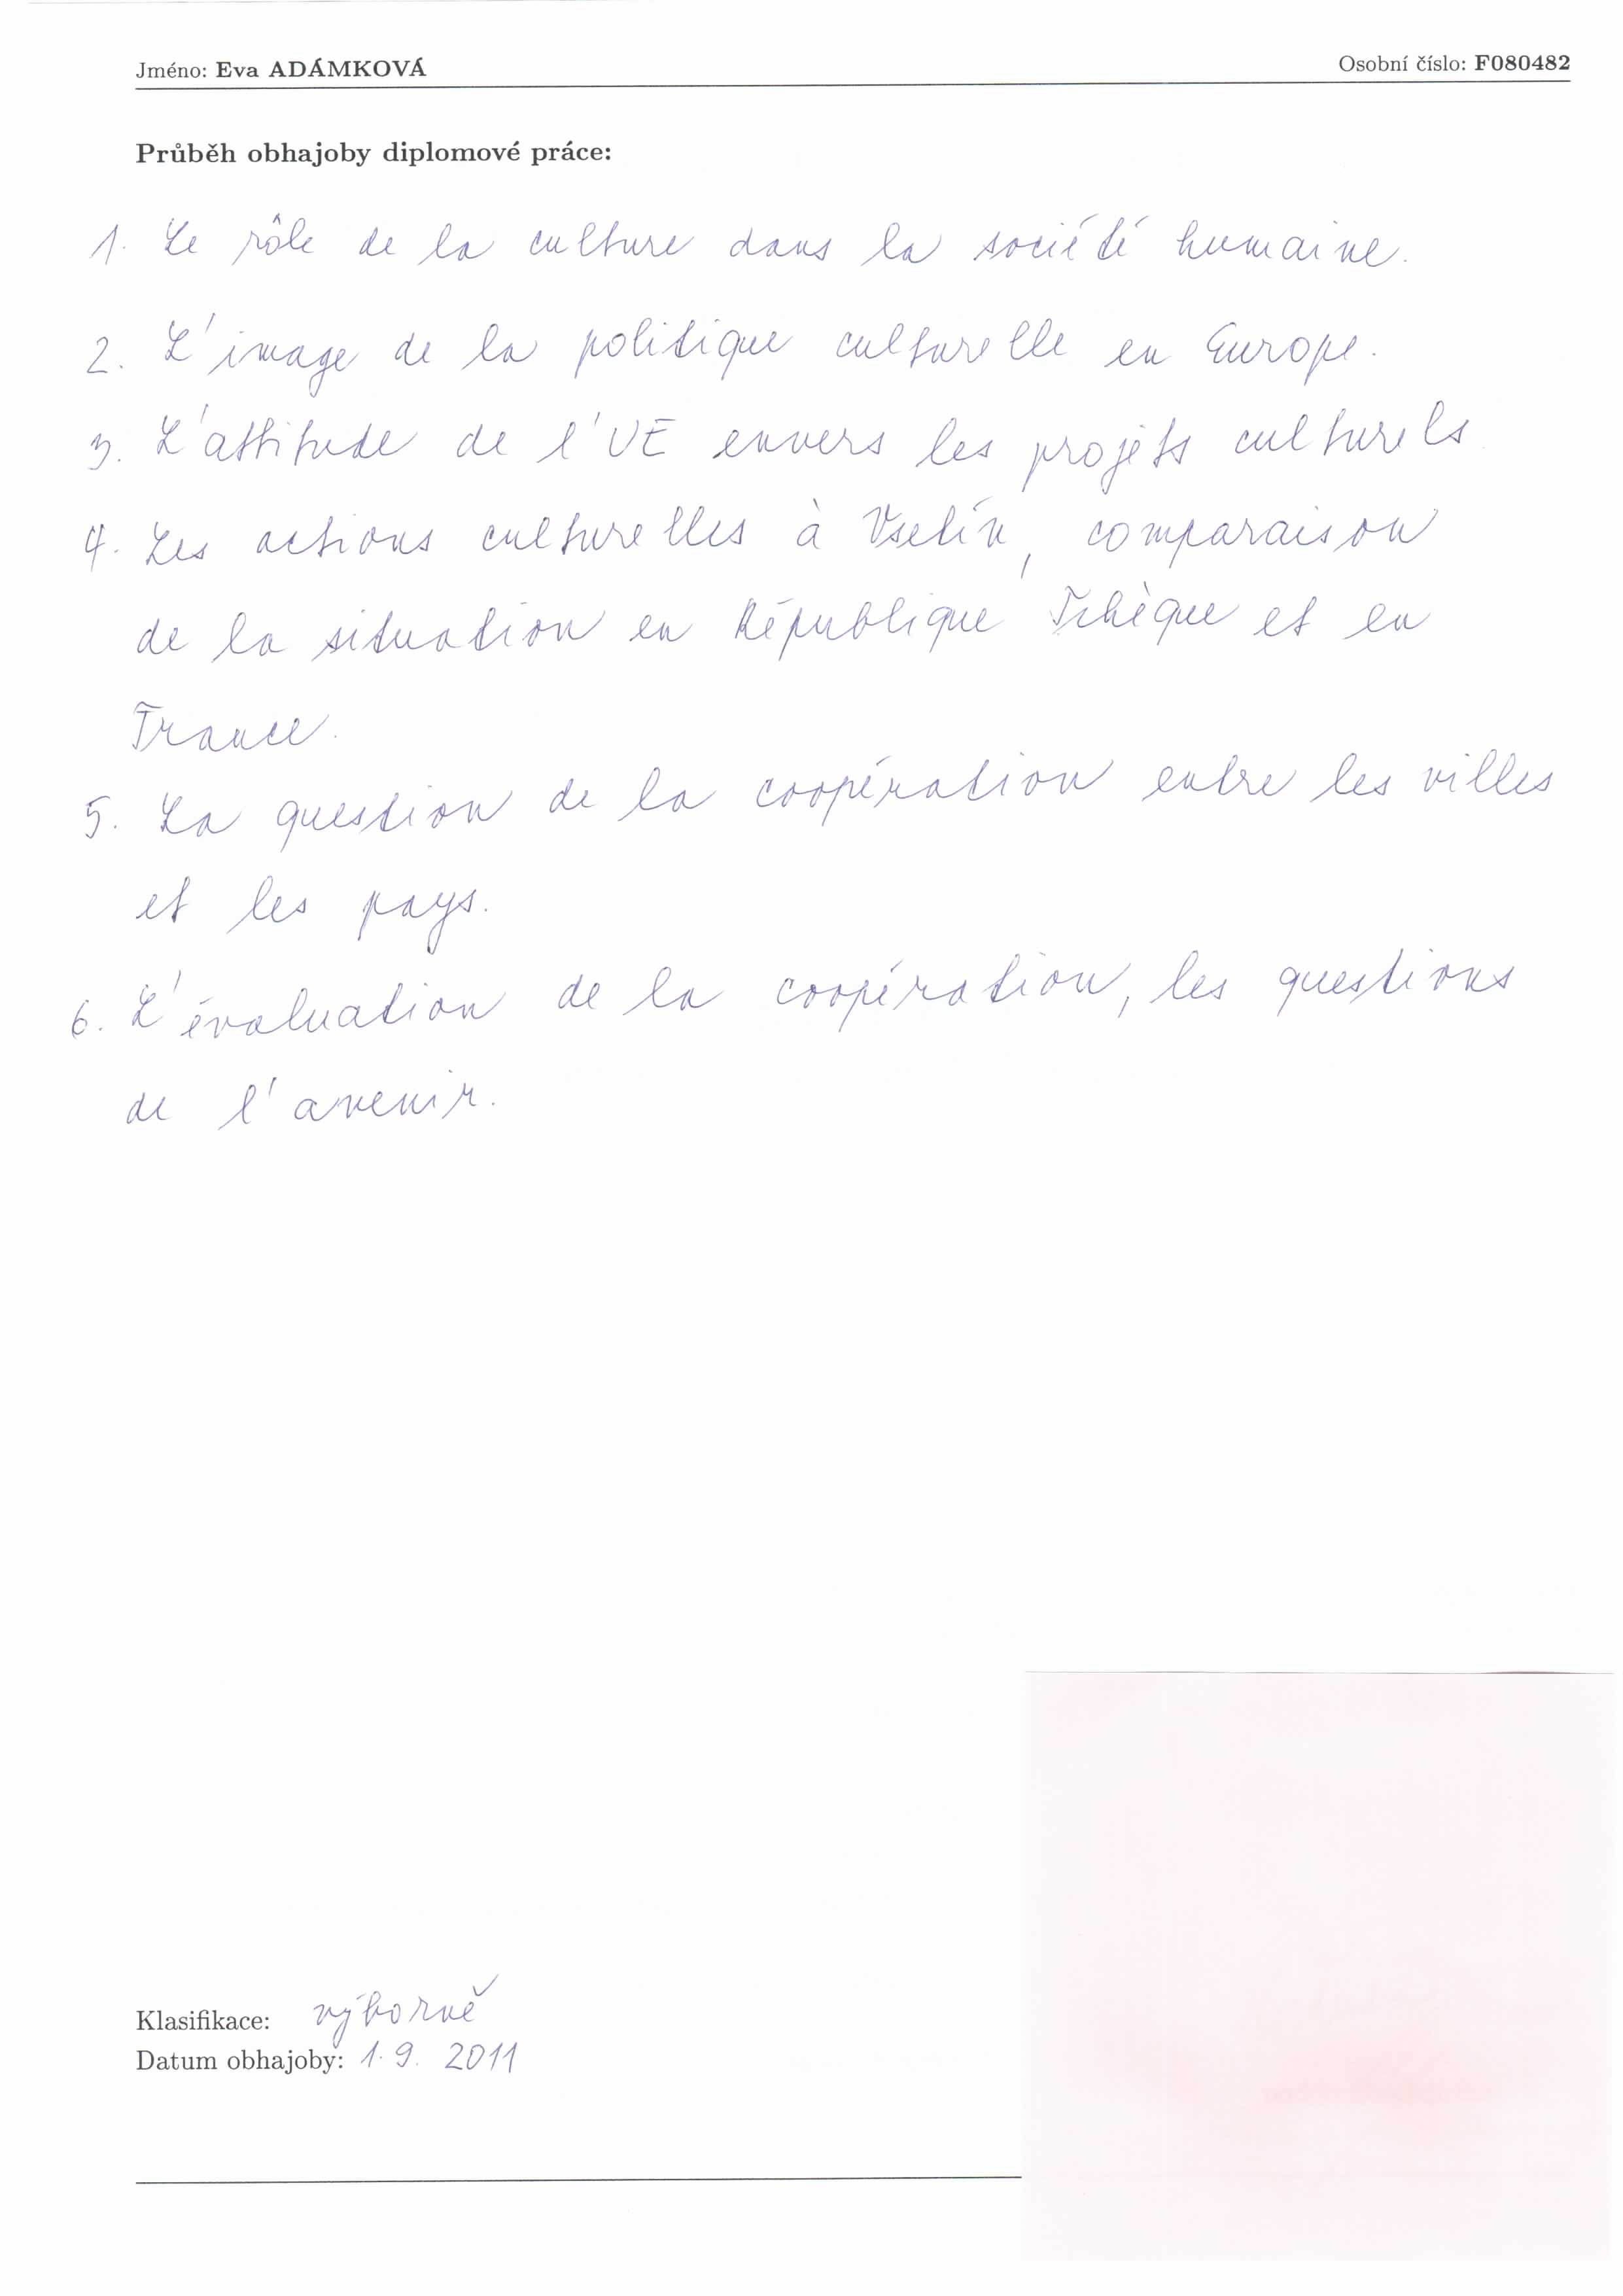 Jméno: Eva ADÁMKOVÁ Osobní číslo: F080482
Průběh obhajoby diplomové práce:
1. Le rôle de la culture dans la société humaine.
2. L'image de la politique culturelle en Europe.
3. L'attitude de l'UE envers les projets culturels
4. Les actions culturelles à Vsetín, comparaison
de la situation en République Tchèque et en
France.
5. La question de la coopération entre les villes
et les pays.
6. L'évaluation de la coopération, les questions
de l'avenir.
Klasifikace: výborně
Datum obhajoby: 1. 9. 2011